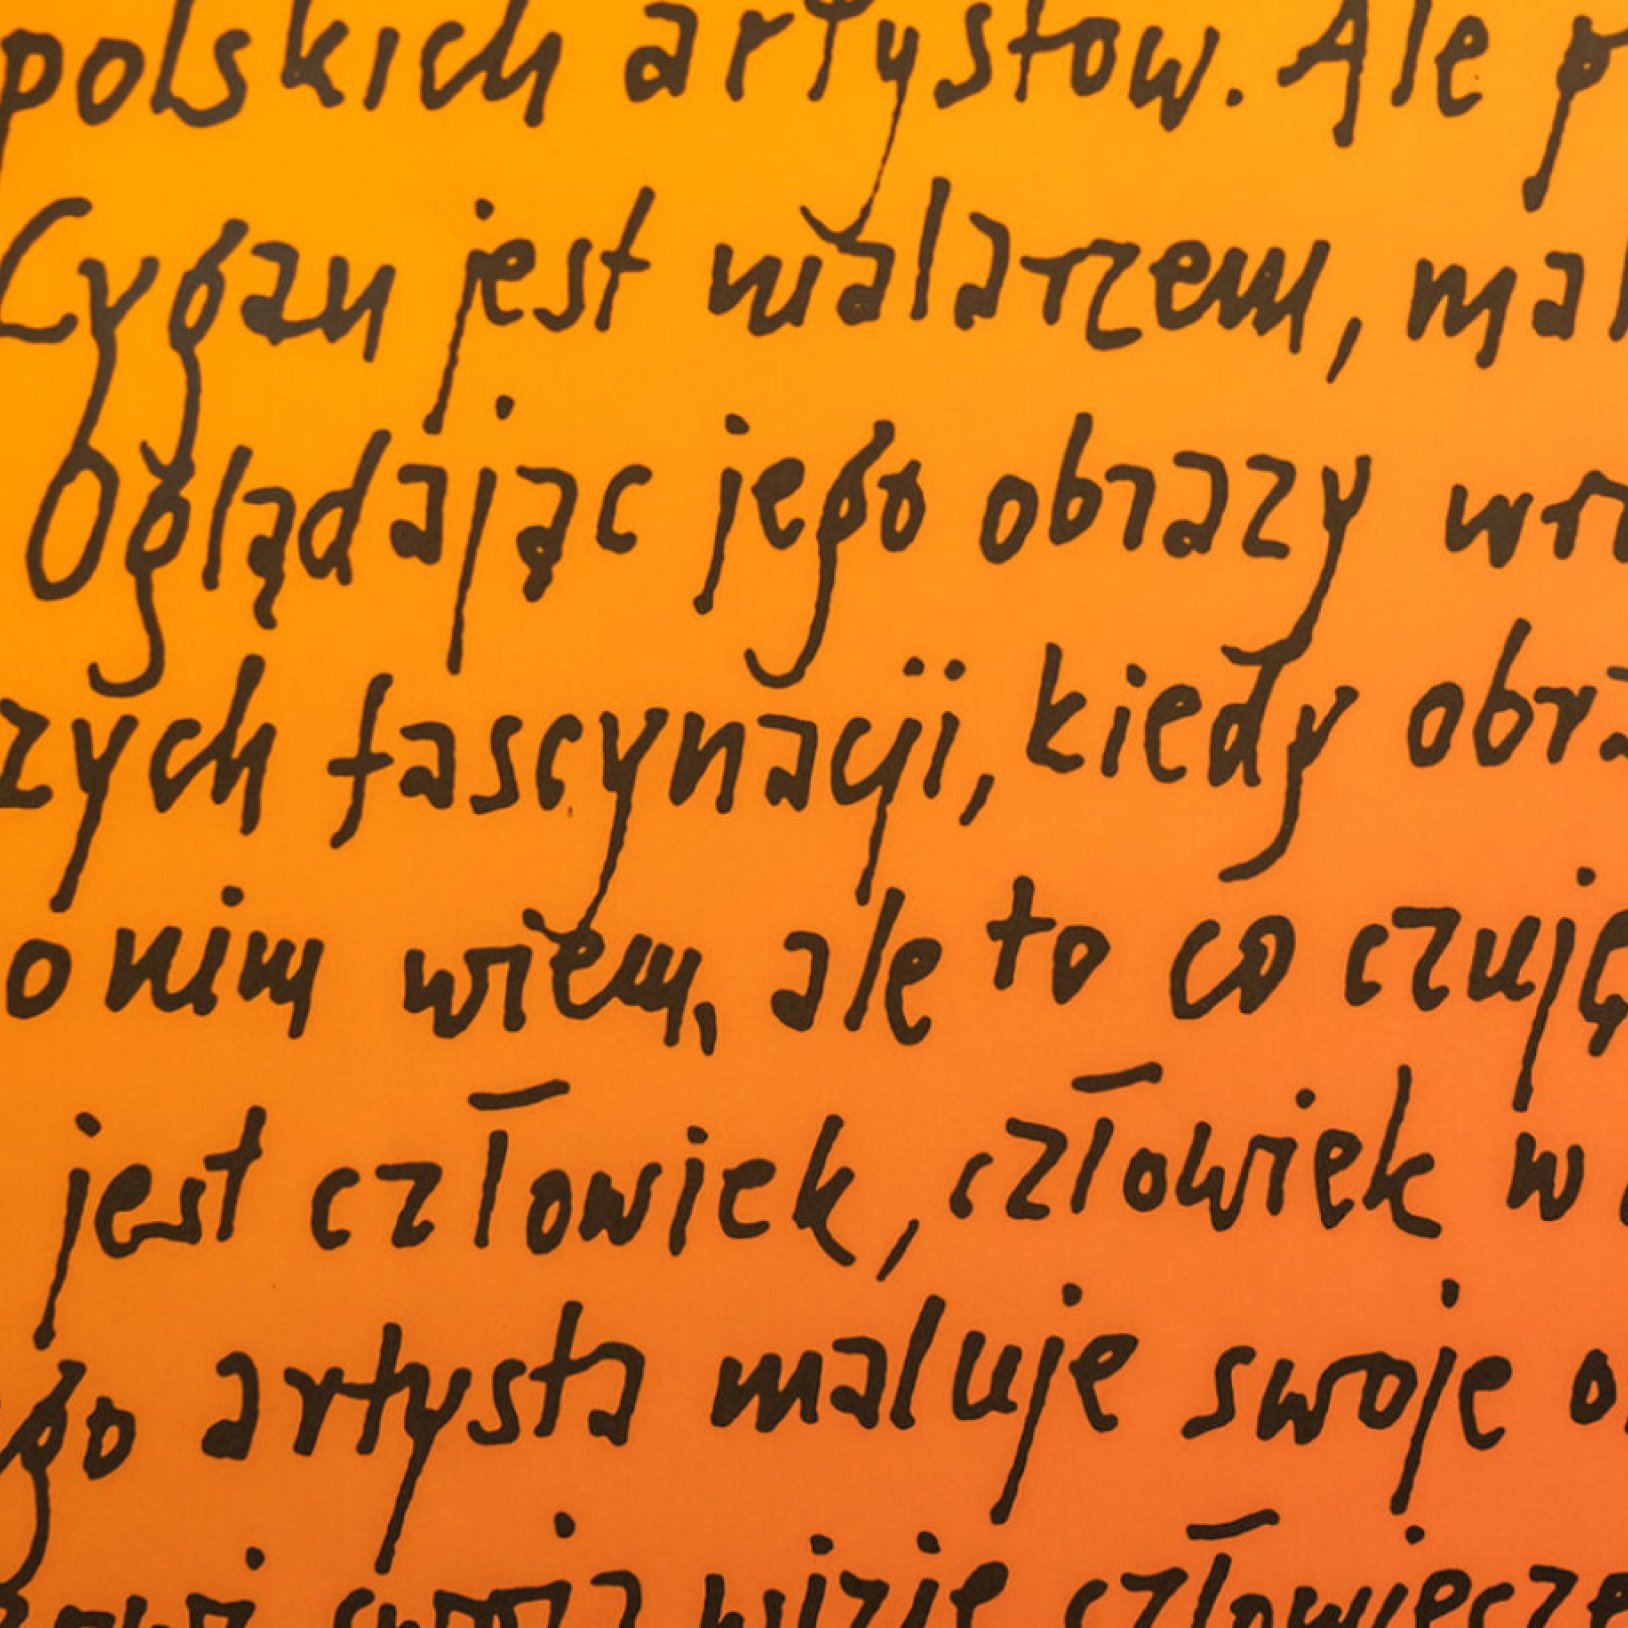 polskich artystow. Ale p
Cygan jest malarzem, mal
Oglądając jego obrazy wr
zych fascynacji, kiedy obra
o nim wiem, ale to co czuję
jest człowiek, człowiek w
go artysta maluje swoje o
swoją wizję człowiecze